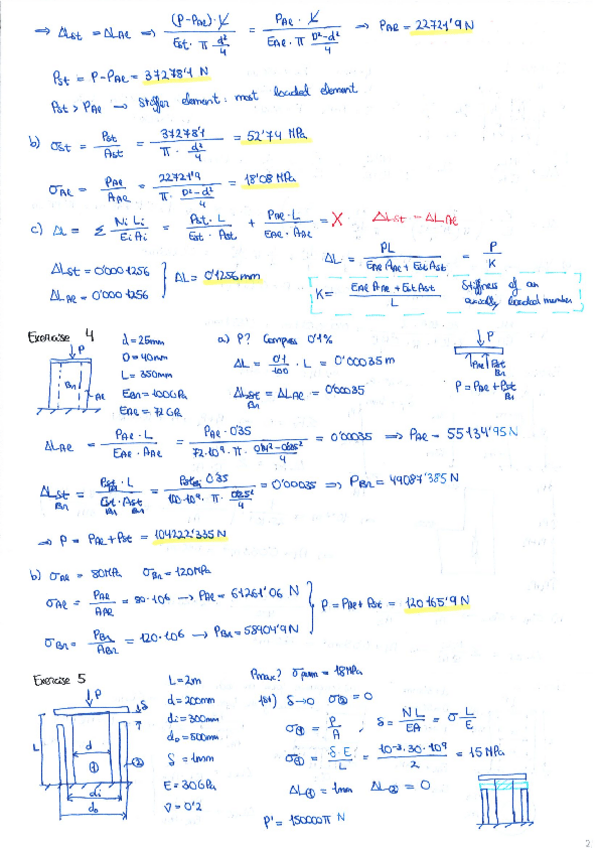 ⇒ ΔLst = ΔLAl ⇒ (P-PAl)·L / Est·π d²/4 = PAl·L / EAl·π D²-d²/4 ⇒ PAl = 22721'9 N
Pst = P-PAl = 37278'1 N
Pst > PAl → Stiffer element: most loaded element
b) σst = Pst/Ast = 37278'1 / π·d²/4 = 52'74 MPa
σAl = PAl/AAl = 22721'9 / π·D²-d²/4 = 18'08 MPa
c) ΔL = Σ NiLi/EiAi = Pst·L / Est·Ast + PAl·L / EAl·AAl = X ΔLst = ΔLAl
ΔLst = 0'0001256
ΔLAl = 0'0001256
ΔL = 0'1256mm
ΔL = PL / EAl AAl + Est Ast = P/K
K = EAl AAl + Est Ast / L Stiffness of an axially loaded member
Exercise 4
P
Br
Al
d = 25mm
D = 40mm
L = 350mm
EBr = 100GPa
EAl = 72GPa
a) P? Compress 0'1%
ΔL = 0'1/100 · L = 0'00035 m
ΔLst = ΔLAl = 0'00035
Br
P
PAl Pst
Br
P = PAl + Pst
Br
ΔLAl = PAl·L / EAl·AAl = PAl·0'35 / 72·10⁹·π·0'04²-0'025²/4 = 0'00035 ⇒ PAl = 55134'95 N
ΔLst = Pst·L / Est·Ast = Pst 0'35 / 100·10⁹·π·0'025²/4 = 0'00035 ⇒ PBr = 49087'385 N
Br Br Br Br
⇒ P = PAl + Pst = 104222'335 N
b) σAl = 80MPa σBr = 120MPa
σAl = PAl/AAl = 80·10⁶ → PAl = 61261'06 N
σBr = PBr/ABr = 120·10⁶ → PBr = 58904'9 N
P = PAl + Pst = 120165'9 N
Exercise 5
P
δ
L
d
①
②
di
do
L = 2m
d = 200mm
di = 300mm
do = 500mm
δ = 1mm
E = 30GPa
ν = 0'2
Pmax? = 18MPa
1st) δ→0 σ② = 0
σ① = P/A , δ = NL/EA = σ L/E
σ① = δ·E/L = 10⁻³·30·10⁹/2 = 15 MPa
ΔL① = 1mm ΔL② = 0
P' = 150000π N
2